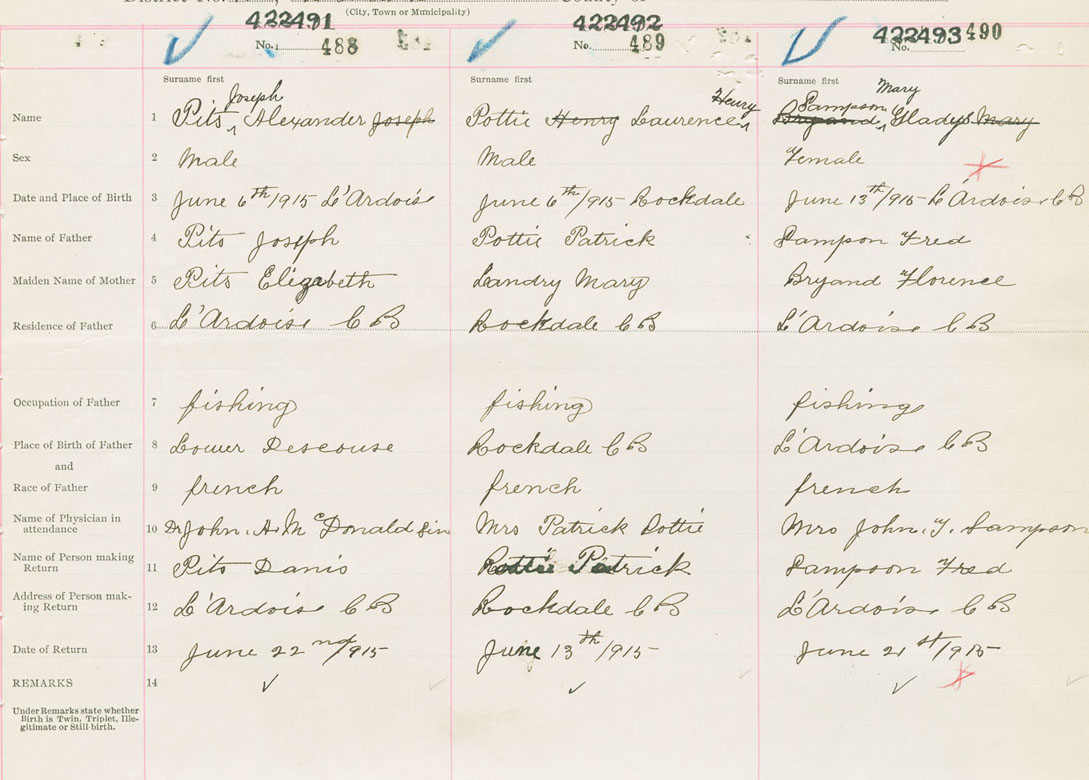 (City, Town or Municipality)
422491 422492 422493
No. 488 No. 489 No. 490
Surname first Surname first Surname first
Joseph Henry Sampson Mary
Name 1 Pits Alexander Joseph Pottie Henry Laurence Bryand Gladys Mary
Sex 2 Male Male Female
Date and Place of Birth 3 June 6th/915 L'Ardoise June 6th/915 Rockdale June 13th/915 L'Ardoise C B
Name of Father 4 Pits Joseph Pottie Patrick Sampson Fred
Maiden Name of Mother 5 Pits Elizabeth Landry Mary Bryand Florence
Residence of Father 6 L'Ardoise C B Rockdale C B L'Ardoise C B
Occupation of Father 7 fishing fishing fishing
Place of Birth of Father 8 Lower Descouse Rockdale C B L'Ardoise C B
and
Race of Father 9 french french french
Name of Physician in
attendance 10 Dr John A McDonald Mrs Patrick Pottie Mrs John. T. Sampson
Name of Person making
Return 11 Pits Danis Pottie Patrick Sampson Fred
Address of Person mak-
ing Return 12 L'Ardoise C B Rockdale C B L'Ardoise C B
Date of Return 13 June 22nd/915 June 13th/915 June 21st/915
REMARKS 14
Under Remarks state whether
Birth is Twin, Triplet, Ille-
gitimate or Still-birth.